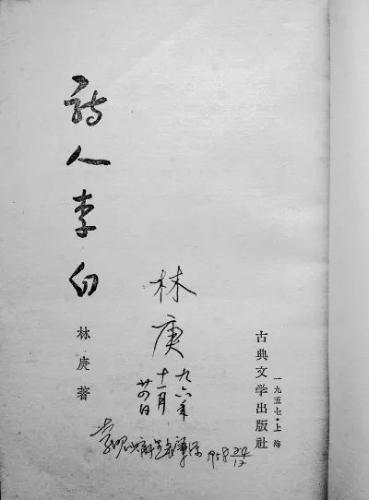 詩人李白
林庚著
林庚
九六年
十一月
廿四日
古典文学出版社
一九五七·上海